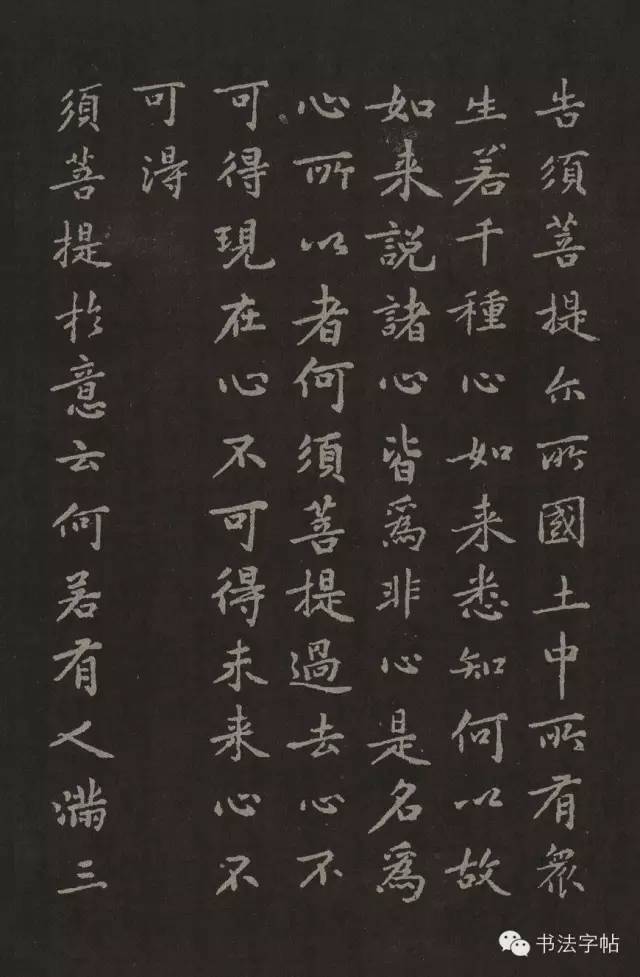 告須菩提尒所國土中所有衆
生若干種心如来悉知何以故
如来說諸心皆爲非心是名爲
心所以者何須菩提過去心不
可得現在心不可得未来心不
可得
須菩提於意云何若有人滿三
书法字帖